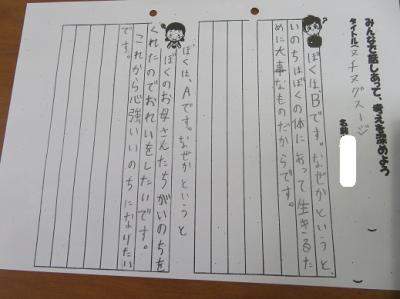 みんなで話しあって、考えを深めよう
タイトル（ヌチヌグスージ）
名前（　　　）
ぼくは、Bです。なぜかというと、
いのちはぼくの体にあって生きるた
めに大事なものだからです。
ぼくは、Aです。なぜかというと
ぼくのお母さんたちがいのちを
くれたのでおれいをしたいです。
これから心強いいのちになりたい
です。